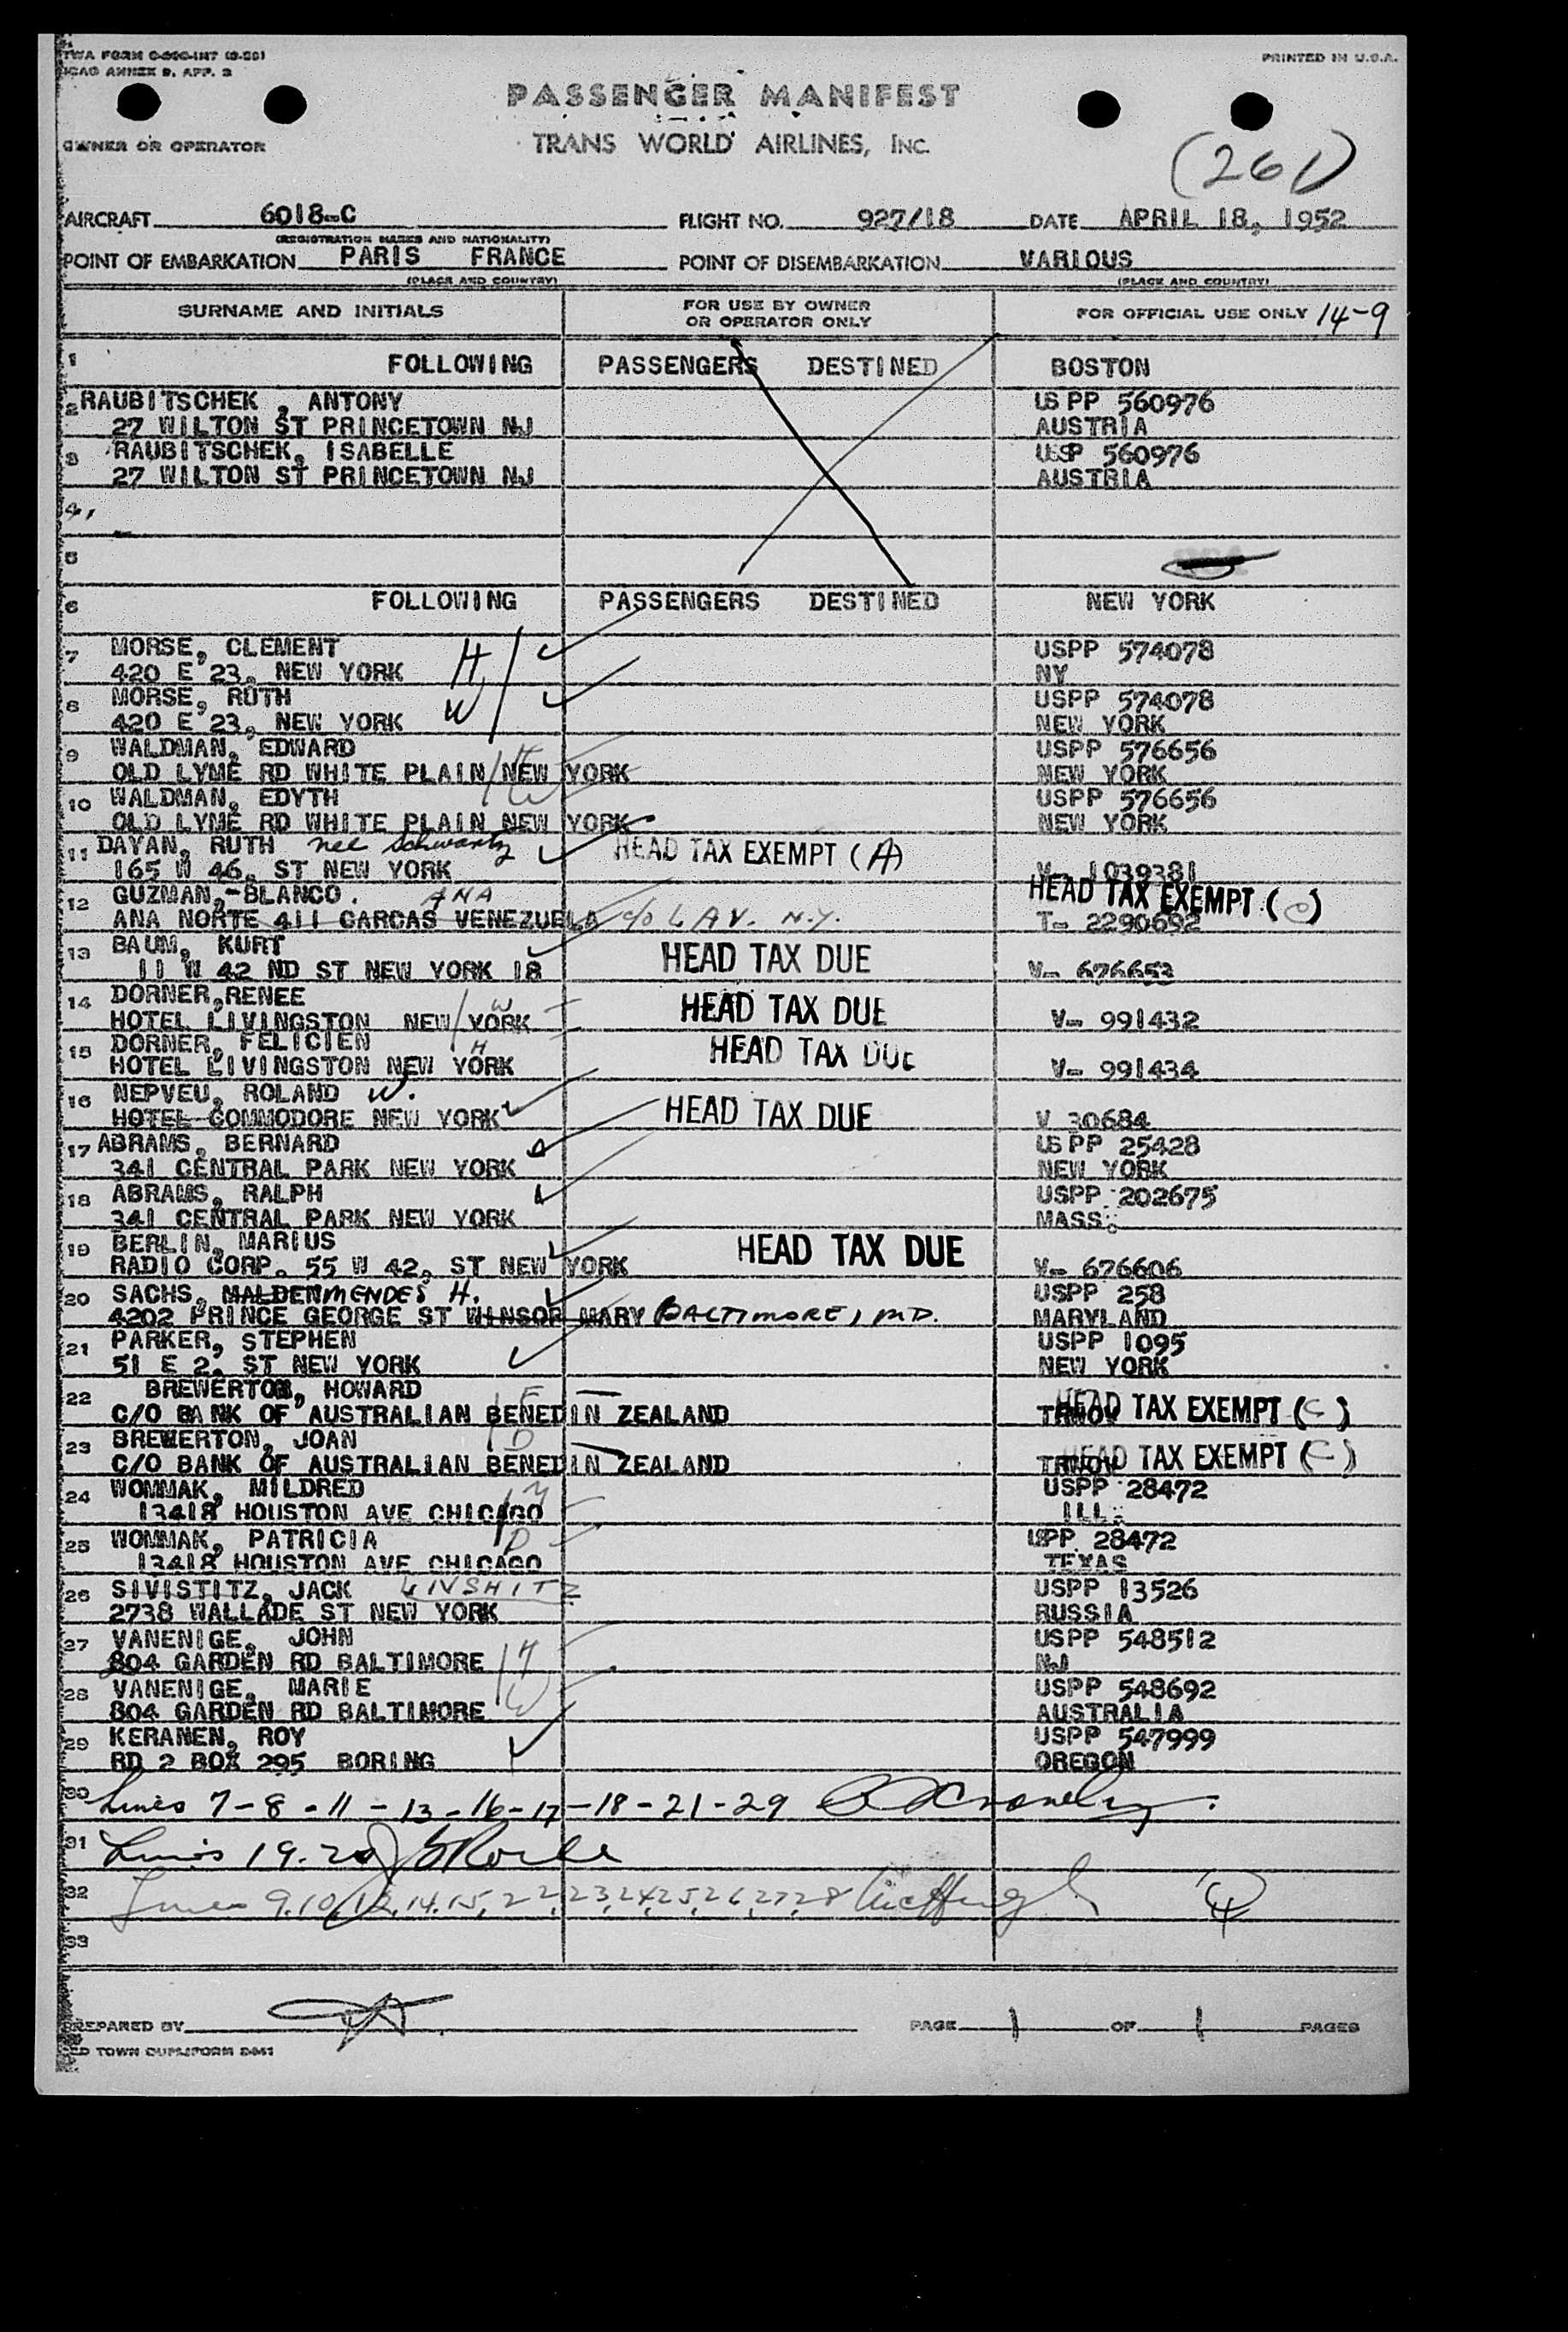 TWA FORM
ICAO ANNEX 9, APP. 3
PRINTED IN U.S.A.
PASSENGER MANIFEST
OWNER OR OPERATOR
TRANS WORLD AIRLINES, INC.
(261)
AIRCRAFT 6018-C FLIGHT NO. 927/18 DATE APRIL 18, 1952
(REGISTRATION MARKS AND NATIONALITY)
POINT OF EMBARKATION PARIS FRANCE POINT OF DISEMBARKATION VARIOUS
(PLACE AND COUNTRY) (PLACE AND COUNTRY)
SURNAME AND INITIALS FOR USE BY OWNER OR OPERATOR ONLY FOR OFFICIAL USE ONLY 14-9
1 FOLLOWING PASSENGERS DESTINED BOSTON
2 RAUBITSCHEK , ANTONY US PP 560976
27 WILTON ST PRINCETOWN NJ AUSTRIA
3 RAUBITSCHEK, ISABELLE USP 560976
27 WILTON ST PRINCETOWN NJ AUSTRIA
4
5
6 FOLLOWING PASSENGERS DESTINED NEW YORK
7 MORSE, CLEMENT H USPP 574078
420 E 23, NEW YORK NY
8 MORSE, RUTH W USPP 574078
420 E 23, NEW YORK NEW YORK
9 WALDMAN, EDWARD H USPP 576656
OLD LYME RD WHITE PLAIN NEW YORK NEW YORK
10 WALDMAN, EDYTH W USPP 576656
OLD LYME RD WHITE PLAIN NEW YORK NEW YORK
11 DAYAN, RUTH nee Schwartz HEAD TAX EXEMPT (A)
165 W 46, ST NEW YORK V- 1039381
12 GUZMAN,-BLANCO. ANA HEAD TAX EXEMPT (C)
ANA NORTE 411 CARCAS VENEZUELA c/o LAV. N.Y. T- 2290692
13 BAUM, KURT HEAD TAX DUE
11 W 42 ND ST NEW YORK 18 V- 676653
14 DORNER,RENEE W HEAD TAX DUE
HOTEL LIVINGSTON NEW YORK V- 991432
15 DORNER, FELICIEN H HEAD TAX DUE
HOTEL LIVINGSTON NEW YORK V- 991434
16 NEPVEU, ROLAND W. HEAD TAX DUE
HOTEL COMMODORE NEW YORK V 30684
17 ABRAMS, BERNARD US PP 25428
341 CENTRAL PARK NEW YORK NEW YORK
18 ABRAMS, RALPH USPP 202675
341 CENTRAL PARK NEW YORK MASS.
19 BERLIN, MARIUS HEAD TAX DUE
RADIO CORP. 55 W 42, ST NEW YORK V- 676606
20 SACHS, MALDEN MENDES H. USPP 258
4202 PRINCE GEORGE ST WINSOR MARY BALTIMORE, MD. MARYLAND
21 PARKER, STEPHEN USPP 1095
51 E 2, ST NEW YORK NEW YORK
22 BREWERTON, HOWARD F HEAD TAX EXEMPT (C)
C/O BANK OF AUSTRALIAN BENEDIN ZEALAND
23 BREWERTON, JOAN D HEAD TAX EXEMPT (C)
C/O BANK OF AUSTRALIAN BENEDIN ZEALAND
24 WOMMAK, MILDRED M USPP 28472
13418 HOUSTON AVE CHICAGO ILL
25 WOMMAK, PATRICIA D USPP 28472
13418 HOUSTON AVE CHICAGO TEXAS
26 SIVISTITZ, JACK LIVSHITZ USPP 13526
2738 WALLADE ST NEW YORK RUSSIA
27 VANENIGE, JOHN H USPP 548512
804 GARDEN RD BALTIMORE NJ
28 VANENIGE, MARIE W USPP 548692
804 GARDEN RD BALTIMORE AUSTRALIA
29 KERANEN, ROY USPP 547999
RD 2 BOX 295 BORING OREGON
30 Lines 7-8-11-13-16-17-18-21-29
31 Lines 19.20
32 Lines 9.10,12,14.15,22,23,24,25,26,27,28
33
PREPARED BY PAGE 1 OF 1 PAGES